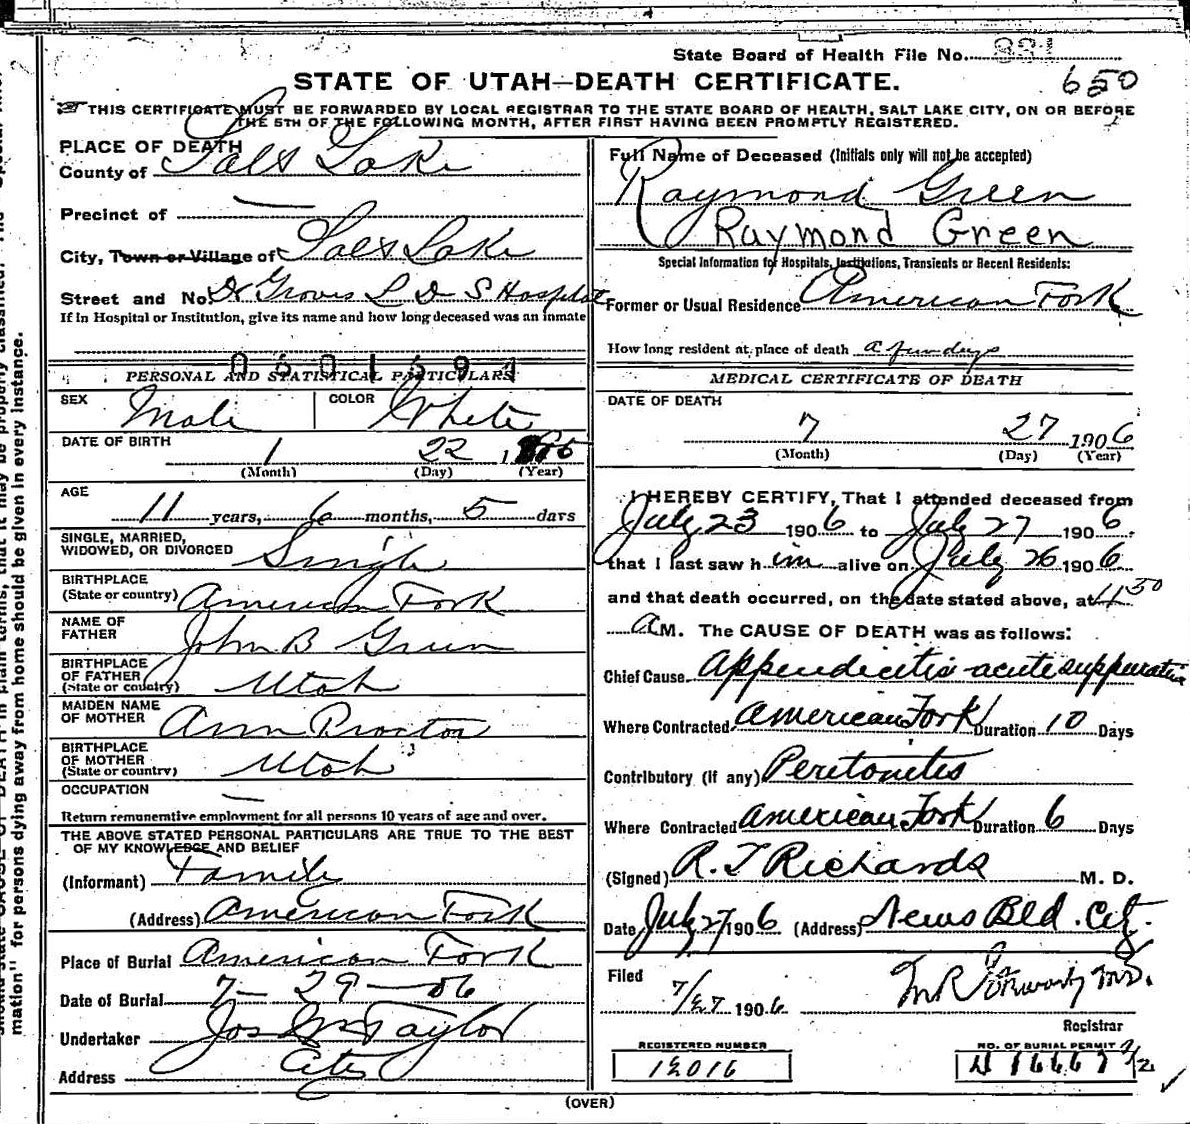 State Board of Health File No. 831
650
STATE OF UTAH—DEATH CERTIFICATE.
THIS CERTIFICATE MUST BE FORWARDED BY LOCAL REGISTRAR TO THE STATE BOARD OF HEALTH, SALT LAKE CITY, ON OR BEFORE
THE 5TH OF THE FOLLOWING MONTH, AFTER FIRST HAVING BEEN PROMPTLY REGISTERED.
PLACE OF DEATH
County of Salt Lake
Precinct of —
City, Town or Village of Salt Lake
Street and No. Dr Groves L D S Hospital
If in Hospital or Institution, give its name and how long deceased was an inmate
PERSONAL AND STATISTICAL PARTICULARS
SEX Male COLOR White
DATE OF BIRTH
1 22 1895
(Month) (Day) (Year)
AGE
11 years, 6 months, 5 days
SINGLE, MARRIED,
WIDOWED, OR DIVORCED Single
BIRTHPLACE
(State or country) American Fork
NAME OF
FATHER John B Green
BIRTHPLACE
OF FATHER
(State or country) Utah
MAIDEN NAME
OF MOTHER Ann Proctor
BIRTHPLACE
OF MOTHER
(State or country) Utah
OCCUPATION —
Return remunerative employment for all persons 10 years of age and over.
THE ABOVE STATED PERSONAL PARTICULARS ARE TRUE TO THE BEST
OF MY KNOWLEDGE AND BELIEF
(Informant) Family
(Address) American Fork
Place of Burial American Fork
Date of Burial 7 — 29 — 06
Undertaker Jos Wm Taylor
Address City
Full Name of Deceased (Initials only will not be accepted)
Raymond Green
Raymond Green
Special Information for Hospitals, Institutions, Transients or Recent Residents:
Former or Usual Residence American Fork
How long resident at place of death a few days
MEDICAL CERTIFICATE OF DEATH
DATE OF DEATH
7 27 1906
(Month) (Day) (Year)
I HEREBY CERTIFY, That I attended deceased from
July 23 1906 to July 27 1906.
that I last saw h im alive on July 26 1906
and that death occurred, on the date stated above, at 4 50
A M. The CAUSE OF DEATH was as follows:
Chief Cause Appendicitis acute suppurative
Where Contracted American Fork Duration 10 Days
Contributory (if any) Peritonitis
Where Contracted American Fork Duration 6 Days
(Signed) R. T Richards M. D.
Date July 27 1906 (Address) News Bld. City.
Filed 7/27 1906
M.D.
Registrar
REGISTERED NUMBER
12016
NO. OF BURIAL PERMIT
(OVER)
mation" for persons dying away from home should be given in every instance.